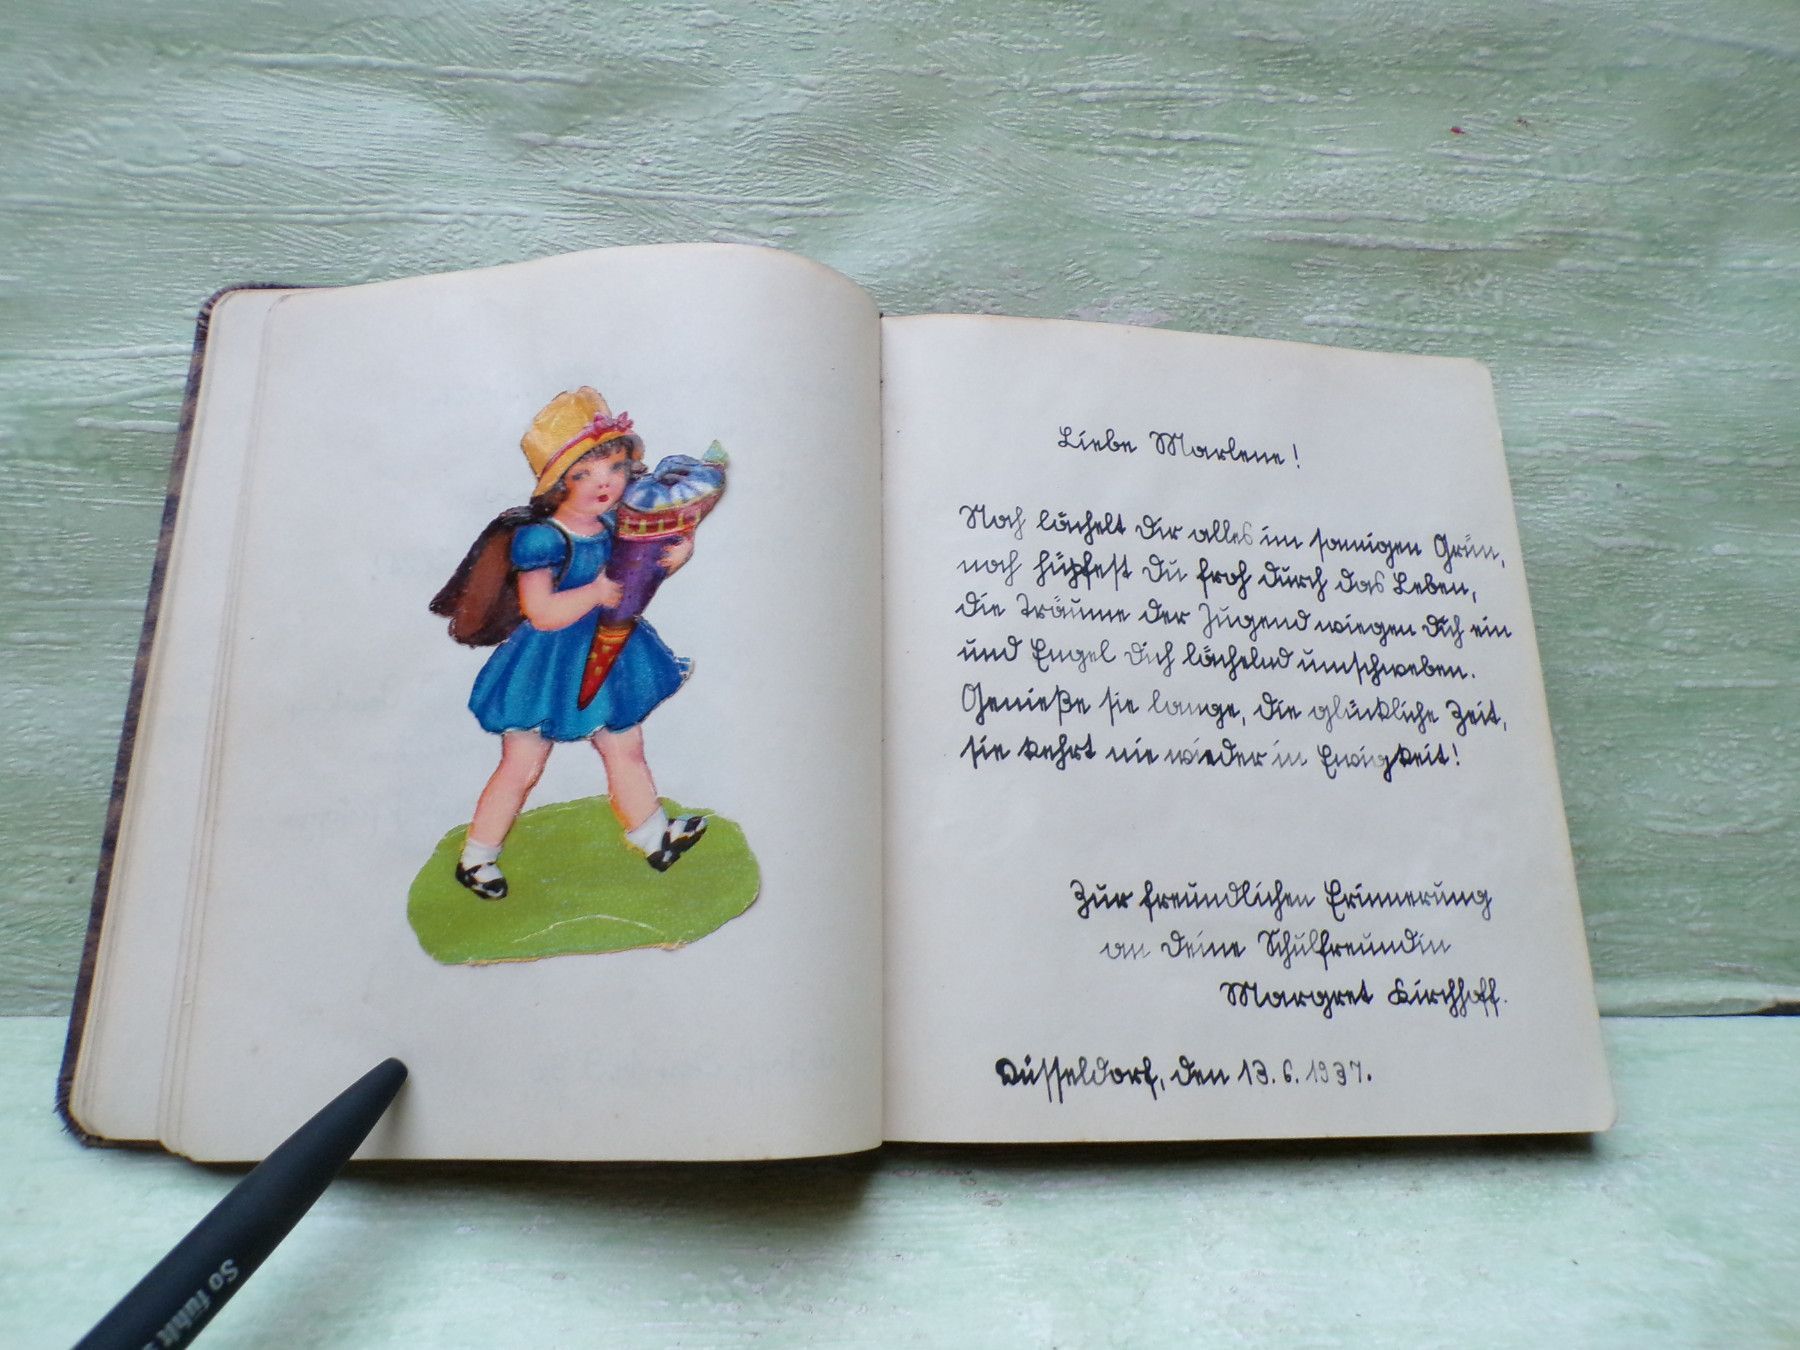 Liebe Marlene!
Noch lächelt Dir alles im sonnigen Grün,
noch hüpfest Du froh durch das Leben,
die Träume der Jugend wiegen Dich ein
und Engel Dich lächelnd umschweben.
Genieße sie lange, die glückliche Zeit,
sie kehrt nie wieder in Ewigkeit!
Zur freundlichen Erinnerung
an Deine Schulfreundin
Margret Kirchhoff.
Düsseldorf, den 13.6.1937.
So fühlt